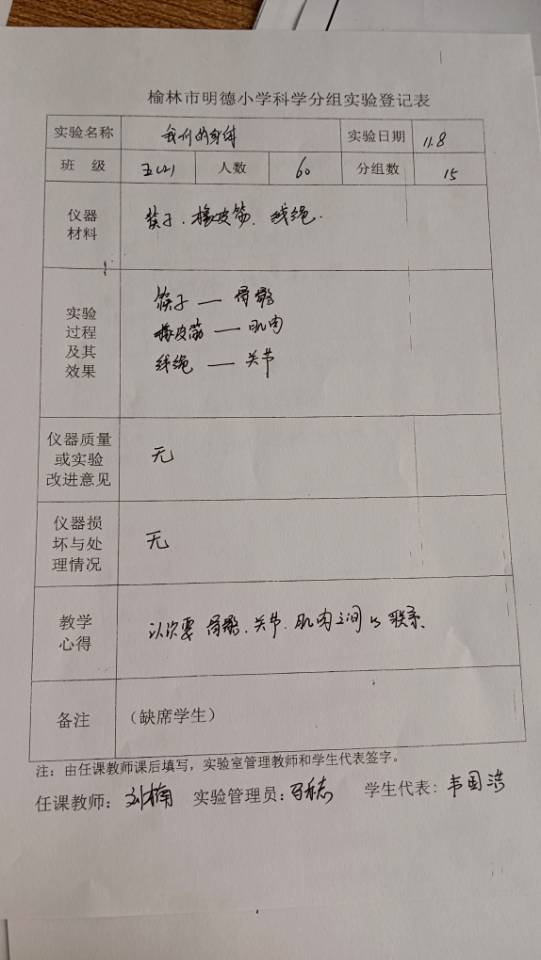 榆林市明德小学科学分组实验登记表
实验名称 我们的身体 实验日期 11.8
班 级 五(4) 人数 60 分组数 15
仪器
材料
筷子、橡皮筋、线绳.
实验
过程
及其
效果
筷子 — 骨骼
橡皮筋 — 肌肉
线绳 — 关节
仪器质量
或实验
改进意见
无
仪器损
坏与处
理情况
无
教学
心得
认识要骨骼、关节、肌肉之间的联系、
备注 （缺席学生）
注：由任课教师课后填写，实验室管理教师和学生代表签字。
任课教师：刘楠 实验管理员： 学生代表：韦国浩